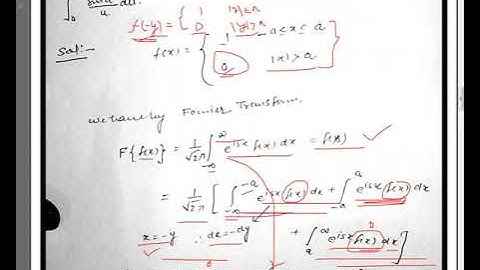 ∫₀ sinu/u du.
f(-y) = { 1 |x|≤a
0 |x|>a
Sol:-
f(x) = { 1 -a≤x≤a
0 |x|>a }
we have by Fourier Transform.
F{f(x)} = 1/√2π ∫_{-∞}^{∞} e^{isx} f(x) dx = f(s) ✓
= 1/√2π [ ∫_{-∞}^{-a} e^{isx} f(x) dx + ∫_{-a}^{a} e^{isx} f(x) dx
x=-y ∴ dx=-dy + ∫_{a}^{∞} e^{isx} f(x) dx ]